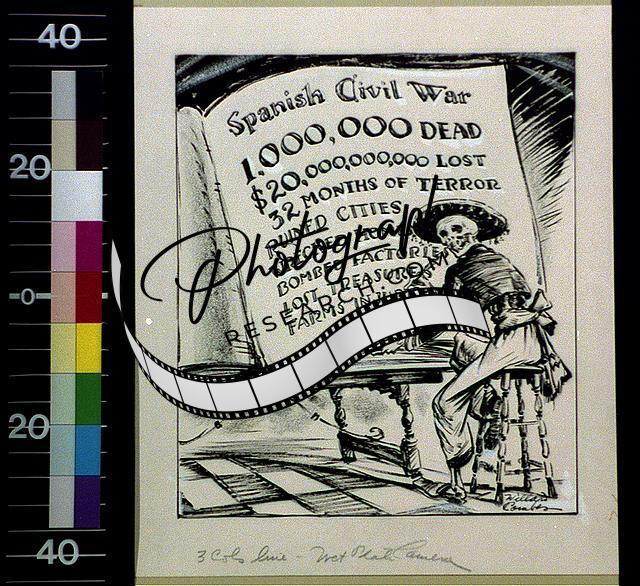 40
20
0
20
40
Spanish Civil War
1,000,000 DEAD
$20,000,000,000 LOST
32 MONTHS OF TERROR
RUINED CITIES
BOMBED FACTORIES
LOST TREASURES
FARMS IN
Photograph
RESEARCH.COM
3 Cols line - Wet Plate Camera